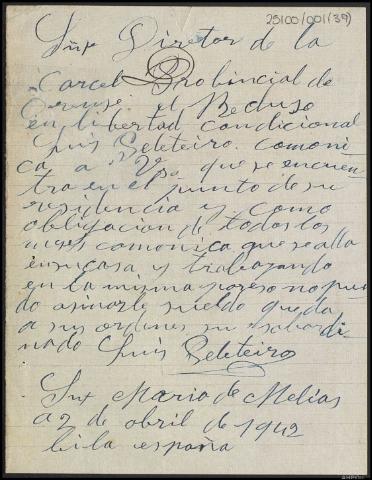 25100/001(39)
Sñr Diretor de la
Carcel Probincial de
Orense: el Recluso
en libertad condicional
Luis Peleteiro. comoni
ca a Vª que se encuen
tra en el punto de su
residencia y como
obligacion de todos los
meses comonica que se alla
en su casa y trabagando
en la misma por eso no pue
do asinarle sueldo queda
a sus ordenes su subordi
nado Luis Peleteiro
Sta Maria de Melias
a 2 de abril de 1942
biba españa